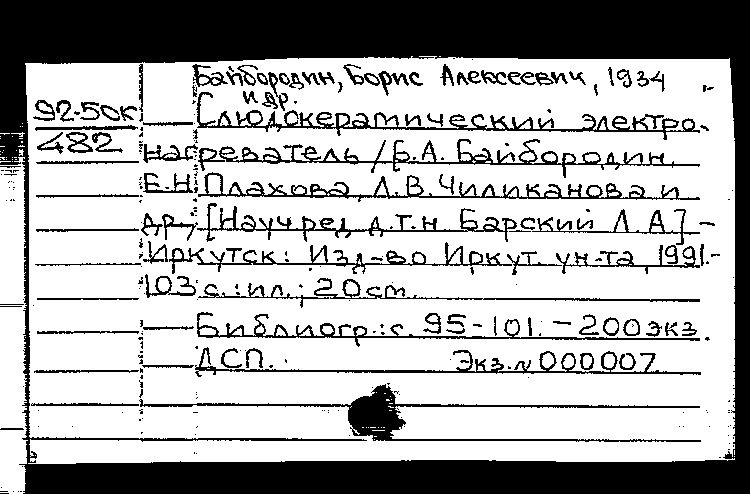 Байбородин, Борис Алексеевич, 1934
и др.
92-50к Слюдокерамический электро-
482 нагреватель / Б. А. Байбородин,
Е.Н. Плахова, Л. В. Чиликанова и
др., [Науч ред д.т.н Барский Л. А] -
Иркутск: Изд-во Иркут. ун-та, 1991.-
103 с. : ил.; 20 см.
Библиогр.: с. 95-101. - 200 экз.
ДСП. Экз. № 000007